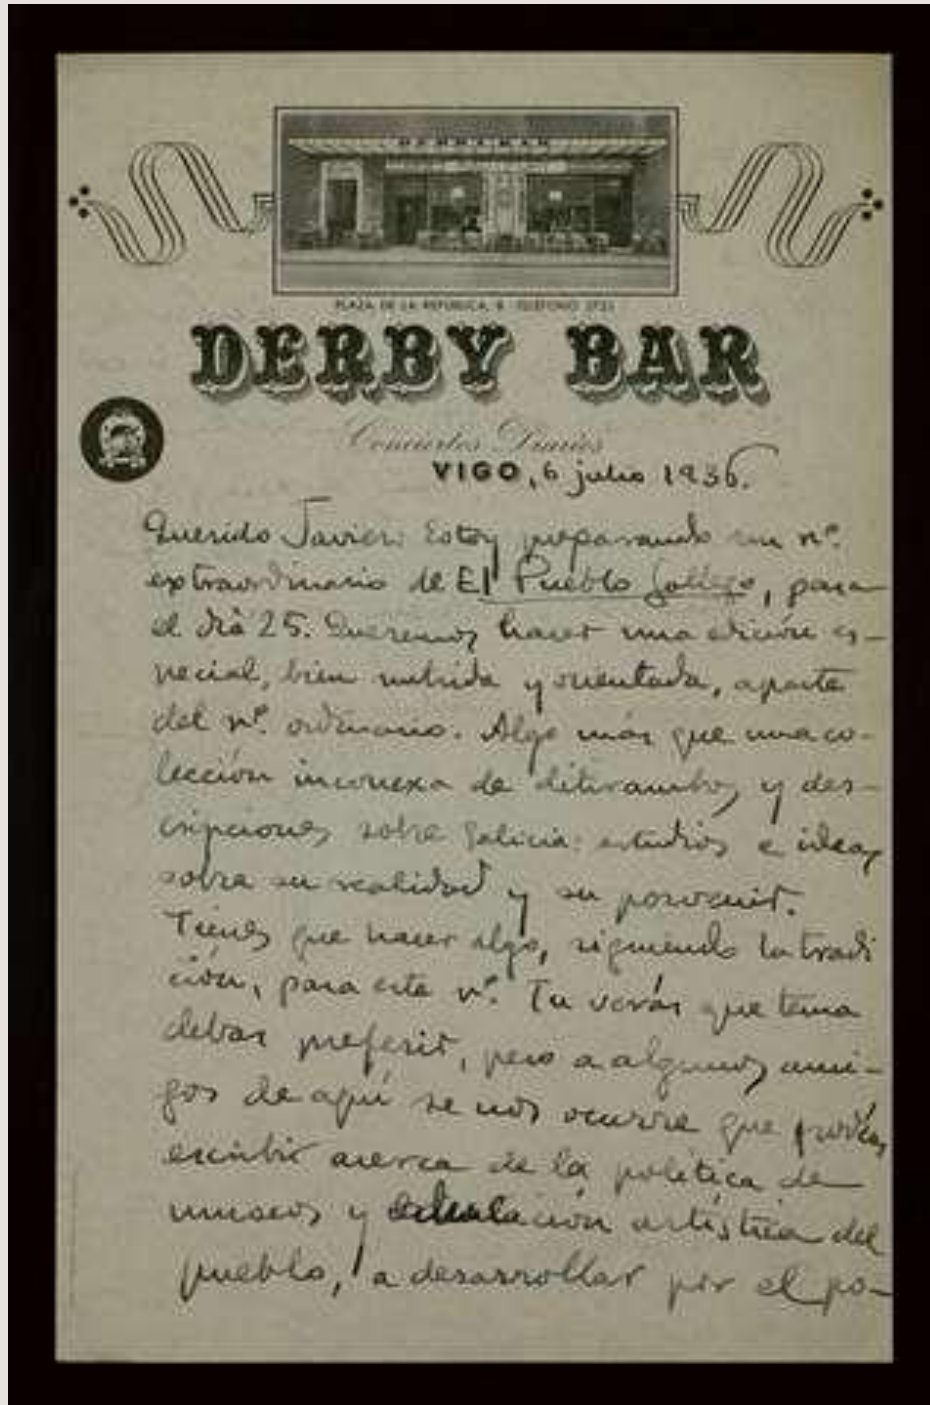 DERBY BAR
PLAZA DE LA REPUBLICA, 8 - TELEFONO
DERBY BAR
Conciertos Diarios
VIGO, 6 julio 1936.
Querido Javier: Estoy preparando un nº.
extraordinario de El Pueblo Gallego, para
el día 25. Queremos hacer una edición es-
pecial, bien nutrida y orientada, aparte
del nº. ordinario. Algo más que una co-
lección inconexa de ditirambos y des-
cripciones sobre Galicia: estudios e ideas
sobre su realidad y su porvenir.
Tienes que hacer algo, siguiendo la tradi
ción, para este nº. Tu verás que tema
debas preferir, pero a algunos ami-
gos de aquí se nos ocurre que podías
escribir acerca de la política de
museos y educación artística del
pueblo, a desarrollar por el po-